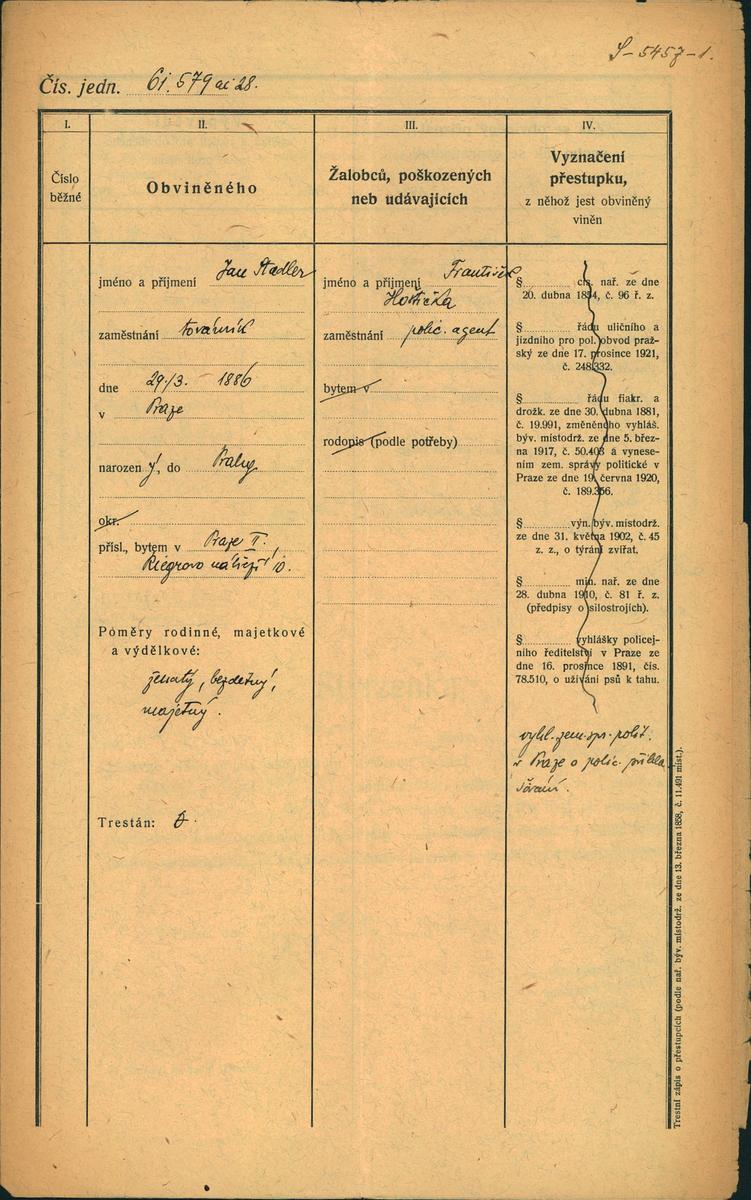 S-5457-1.
Čís. jedn. 61.579 ai 28.
I.
Číslo
běžné
II.
Obviněného
III.
Žalobců, poškozených
neb udávajících
IV.
Vyznačení
přestupku,
z něhož jest obviněný
viněn
jméno a příjmení Jan Stadler
zaměstnání továrník
dne 29./3. 1886
v Praze
narozen ý, do Prahy
okr.
přísl., bytem v Praze II.,
Riegrovo nábřeží 10.
Poměry rodinné, majetkové
a výdělkové:
ženatý, bezdětný,
majetný.
Trestán: 0.
jméno a příjmení František
Hostička
zaměstnání polic. agent
bytem v
rodopis (podle potřeby)
§ cis. nař. ze dne
20. dubna 1854, č. 96 ř. z.
§ řádu uličního a
jízdního pro pol. obvod praž-
ský ze dne 17. prosince 1921,
č. 248/332.
§ řádu fiakr. a
drožk. ze dne 30. dubna 1881,
č. 19.991, změněného vyhláš.
býv. místodrž. ze dne 5. břez-
na 1917, č. 50.403 a vynese-
ním zem. správy politické v
Praze ze dne 19. června 1920,
č. 189.356.
§ výn. býv. místodrž.
ze dne 31. května 1902, č. 45
z. z., o týrání zvířat.
§ min. nař. ze dne
28. dubna 1910, č. 81 ř. z.
(předpisy o silostrojích).
§ vyhlášky policej-
ního ředitelství v Praze ze
dne 16. prosince 1891, čís.
78.510, o užívání psů k tahu.
vyhl. zem. spr. polit.
v Praze o polic. přihla-
šování.
Trestní zápis o přestupcích (podle nař. býv. místodrž. ze dne 13. března 1858, č. 11.491 míst.).